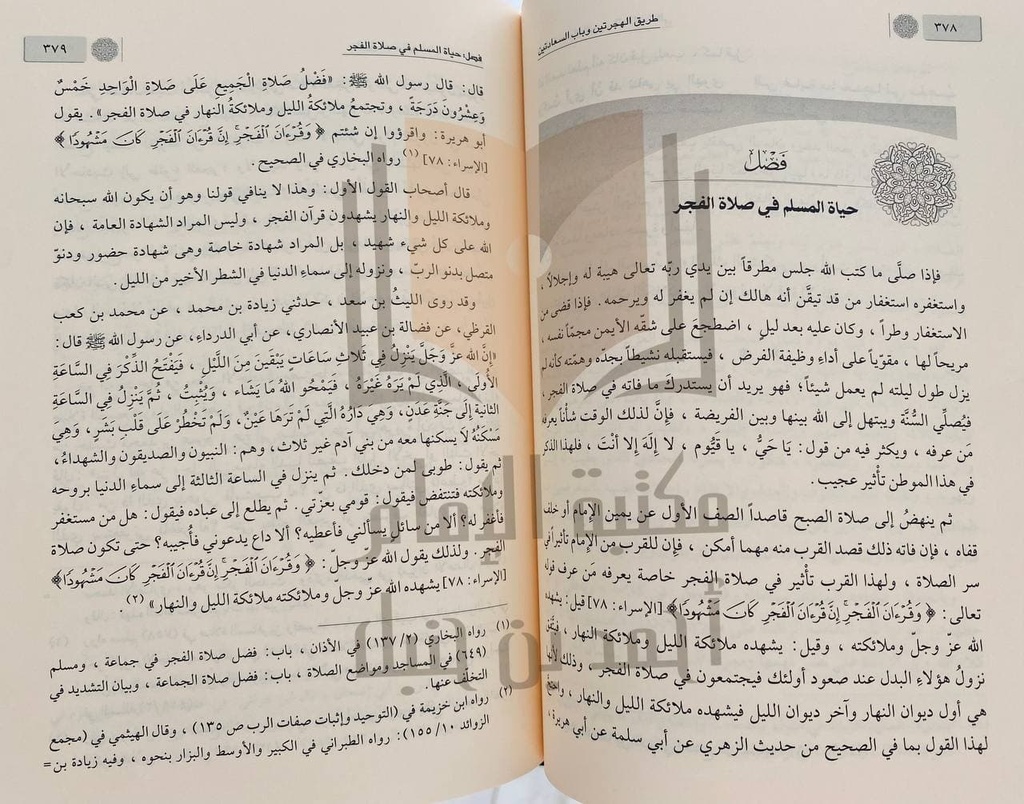 ٣٧٨
طريق الهجرتين وباب السعادتين
فَصْلٌ
حياة المسلم في صلاة الفجر
فإذا صلَّى ما كتب الله جلس مطرقاً بين يدي ربّه تعالى هيبة له وإجلالاً ،
واستغفره استغفار من قد تيقَّن أنه هالك إن لم يغفر له ويرحمه . فإذا قضى من
الاستغفار وطراً ، وكان عليه بعد ليل ، اضطجعَ على شقّه الأيمن مجمّاً نفسه ،
مريحاً لها ، مقوّياً على أداءِ وظيفة الفرض ، فيستقبله نشيطاً بجدّه وهمّته كأنه لم
يزل طول ليلته لم يعمل شيئاً؛ فهو يريد أن يستدركَ ما فاته في صلاة الفجر ،
فيُصلِّي السُّنَّة ويبتهل إلى الله بينها وبين الفريضة ، فإنَّ لذلك الوقت شأناً يعرفه
مَن عرفه ، ويكثر فيه من قول: يَا حَيُّ ، يا قَيُّوم ، لا إلَه إلا أنْتَ ، فلهذا الذكر
في هذا الموطن تأثير عجيب.
ثم ينهضُ إلى صلاة الصبح قاصداً الصف الأول عن يمين الإمام أو خلف
قفاه ، فإن فاته ذلك قصد القرب منه مهما أمكن ، فإن للقرب من الإمام تأثيراً في
سر الصلاة ، ولهذا القرب تأثير في صلاة الفجر خاصة يعرفه مَن عرف قوله
تعالى: ﴿ وَقُرْءَانَ الْفَجْرِ إِنَّ قُرْءَانَ الْفَجْرِ كَانَ مَشْهُودًا﴾ [الإسراء: ٧٨] قيل: يشهده
الله عزّ وجلّ وملائكته ، وقيل: يشهده ملائكة الليل وملائكة النهار ، فيتَّفق
نزولُ هؤلاءِ البدل عند صعود أولئك فيجتمعون في صلاة الفجر ، وذلك لأنها
هي أول ديوان النهار وآخر ديوان الليل فيشهده ملائكة الليل والنهار ، واحتج
لهذا القول بما في الصحيح من حديث الزهري عن أبي سلمة عن أبي هريرة ،
فصل: حياة المسلم في صلاة الفجر
٣٧٩
قال: قال رسول الله ﷺ: «فَضْلُ صَلاةِ الْجَمِيعِ عَلَى صَلاةِ الْوَاحِدِ خَمْسٌ
وَعِشْرُونَ دَرَجَةً ، وتجتمعُ ملائكةُ الليل وملائكةُ النهار في صلاة الفجر» . يقول
أبو هريرة: واقرؤوا إن شئتم ﴿ وَقُرْءَانَ الْفَجْرِ إِنَّ قُرْءَانَ الْفَجْرِ كَانَ مَشْهُودًا ﴾
[الإسراء: ٧٨] (١) رواه البخاري في الصحيح .
قال أصحاب القول الأول: وهذا لا ينافي قولنا وهو أن يكون الله سبحانه
وملائكة الليل والنهار يشهدون قرآن الفجر ، وليس المراد الشهادة العامة ، فإن
الله على كل شيء شهيد ، بل المراد شهادة خاصة وهى شهادة حضور ودنوّ
متصل بدنو الربّ ، ونزوله إلى سماءِ الدنيا في الشطر الأخير من الليل.
وقد روى الليثُ بن سعد ، حدثني زيادة بن محمد ، عن محمد بن كعب
القرظي، عن فضالة بن عبيد الأنصاري، عن أبي الدرداءِ، عن رسول الله ﷺ قال:
«إنَّ الله عزَّ وَجَلَّ يَنْزِلُ فِي ثَلاثِ سَاعَاتٍ يَبْقَيْنَ مِنَ اللَّيْلِ ، فَيَفْتَحُ الذِّكْرَ فِي السَّاعَةِ
الأُولَى ، الَّذِي لَمْ يَرَهُ غَيْرُهُ ، فَيَمْحُو اللهُ مَا يَشَاء ، وَيُثْبِتُ ، ثُمَّ يَنْزِلُ فِي السَّاعَةِ
الثانِيةِ إلَى جَنَّةِ عَدْنٍ، وَهِيَ دَارُهُ الَّتِي لَمْ تَرَهَا عَيْنٌ، وَلَمْ تَخْطُرْ عَلَى قَلْبِ بَشَرٍ ، وَهِيَ
مَسْكَنُهُ لَا يسكنها معه من بني آدم غير ثلاث، وهم: النبيون والصديقون والشهداءُ،
ثم يقول: طوبى لمن دخلك. ثم ينزل في الساعة الثالثة إلى سماءِ الدنيا بروحه
وملائكته فتنتفض فيقول: قومي بعزّتي. ثم يطلع إلى عباده فيقول: هل من مستغفر
فأغفر له؟ ألا من سائل يسألني فأعطيه؟ ألا داع يدعوني فأُجيبه؟ حتى تكون صلاة
الفجر . ولذلك يقول الله عز وجلّ: ﴿ وَقُرْءَانَ الْفَجْرِ إِنَّ قُرْءَانَ الْفَجْرِ كَانَ مَشْهُودًا﴾
[الإسراء: ٧٨] يشهده الله عزّ وجلّ وملائكته ملائكة الليل والنهار» (٢) .
(١) رواه البخاري (٢/ ١٣٧) في الأذان ، باب: فضل صلاة الفجر في جماعة ، ومسلم
(٦٤٩) في المساجد ومواضع الصلاة ، باب: فضل صلاة الجماعة ، وبيان التشديد في
التخلف عنها.
(٢) رواه ابن خزيمة في (التوحيد وإثبات صفات الرب ص ١٣٥) ، وقال الهيثمي في (مجمع
الزوائد ١٠/ ١٥٥): رواه الطبراني في الكبير والأوسط والبزار بنحوه ، وفيه زيادة بن =
مكتبة الإمام
أحمد بن حنبل